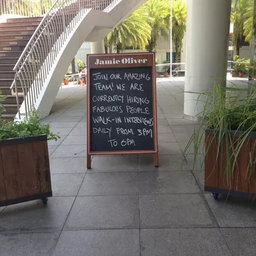 Jamie Oliver
JOIN OUR AMAZING
TEAM! WE ARE
CURRENTLY HIRING
FABULOUS PEOPLE
WALK-IN INTERVIEWS
DAILY FROM 3PM
TO 6PM